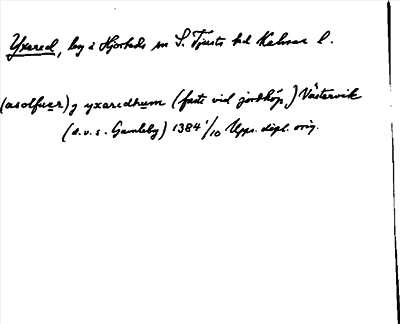 Yxered, by i Hjorteds sn S. Tjusts hd Kalmar l.
(asolfuer) j yxaredhum (faste vid jordköp,) Västervik
(d.v.s. Gamleby) 1384 1/10 Upps. dipl. orig.